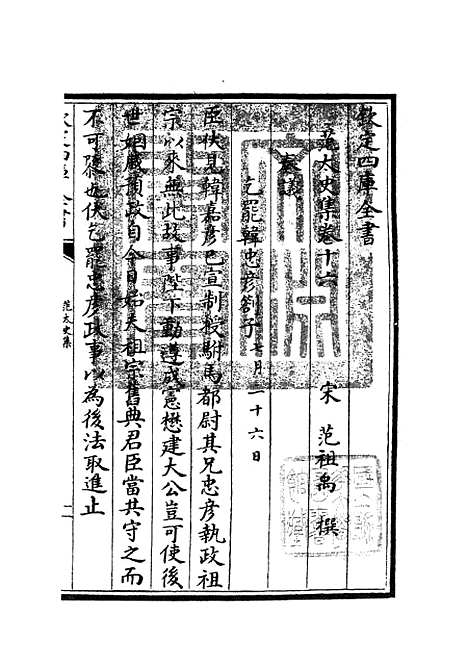 欽定四庫全書
范太史集卷十
宋 范祖禹 撰
奏議
乞罷韓忠彦劄子 月二十六日
臣伏見韓嘉彦已宣制授駙馬都尉其兄忠彦執政祖
宗以來無此故事陛下動遵成憲懋建大公豈可使後
世姻戚預政自今日始夫祖宗舊典君臣當共守之而
不可隳也伏乞罷忠彦政事以為後法取進止
欽定四庫全書
范太史集